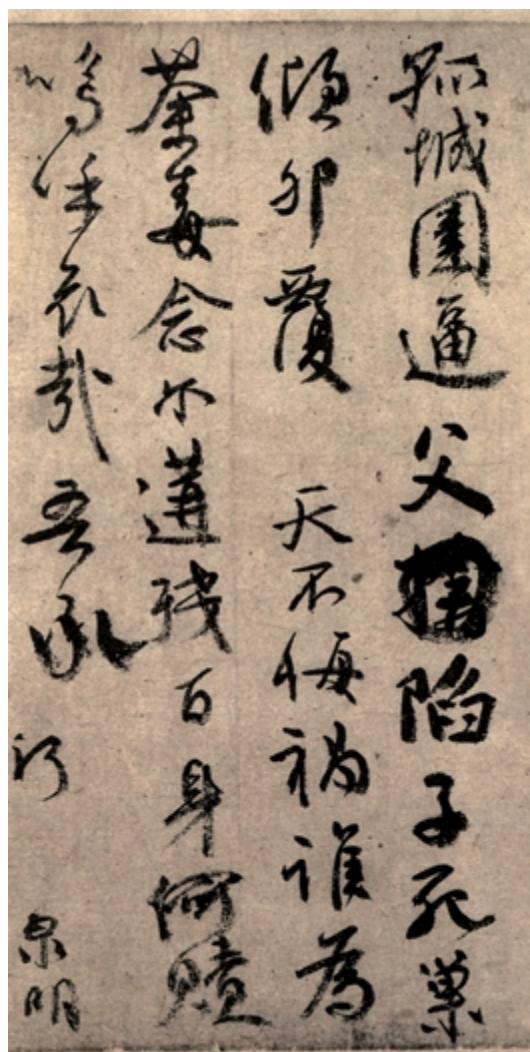 孤城圍逼父陷子死巢
傾卵覆 天不悔禍誰為
荼毒念爾遘殘百身何贖
嗚乎哀哉吾承 泉明